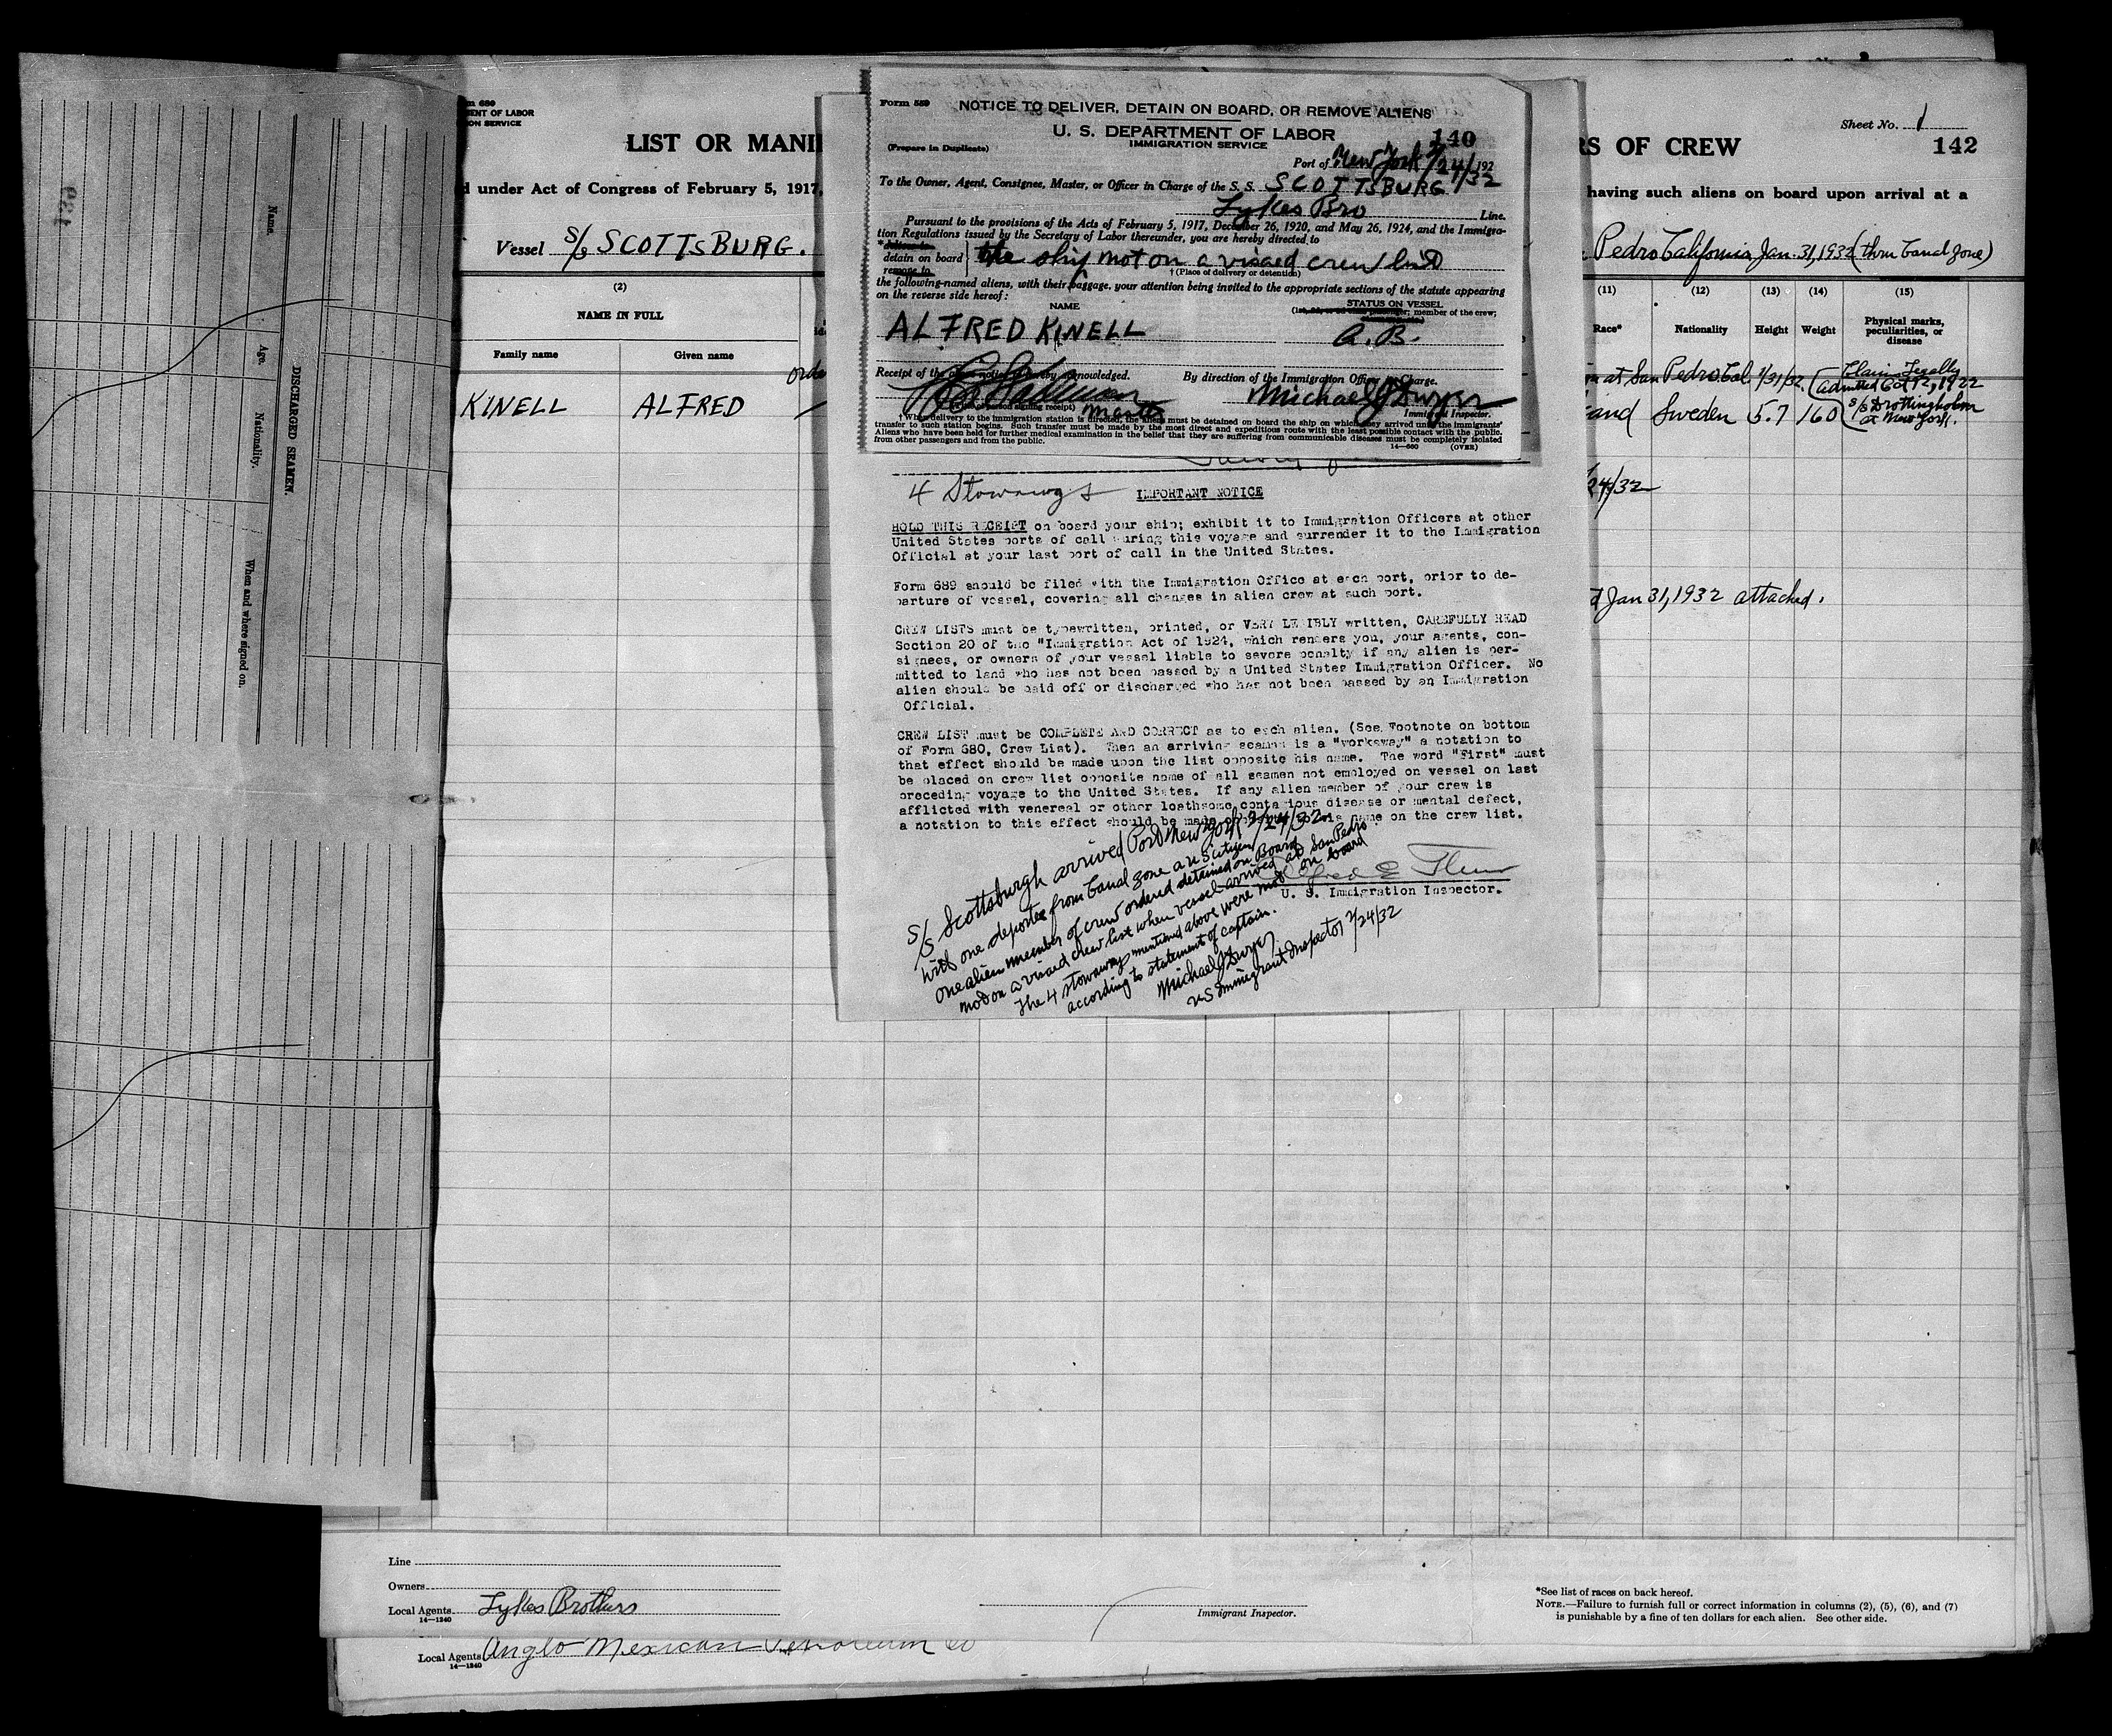 130
Name.
Age.
Nationality.
When and where signed on.
DISCHARGED SEAMEN.
m 689
MENT OF LABOR
ON SERVICE
LIST OR MANI
RS OF CREW
Sheet No. 1
142
d under Act of Congress of February 5, 1917,
having such aliens on board upon arrival at a
Vessel S/S SCOTTSBURG.
Pedro California Jan. 31, 1932 (thru Canal Zone)
(2)
NAME IN FULL
Family name
Given name
(11)
(12)
(13)
(14)
(15)
Race*
Nationality
Height
Weight
Physical marks,
peculiarities, or
disease
at San Pedro Cal. 1/31/32.
Claims Legally
admitted Oct 12, 1922
S/S Drottingholm
at New York.
KINELL
ALFRED
Sweden 5.7 160
24/32
d Jan 31, 1932 attached.
Form 659
NOTICE TO DELIVER, DETAIN ON BOARD, OR REMOVE ALIENS
U. S. DEPARTMENT OF LABOR
IMMIGRATION SERVICE
140
(Prepare in Duplicate)
Port of New York 2/24/32 192
To the Owner, Agent, Consignee, Master, or Officer in Charge of the S. S. SCOTTSBURG
Lykes Bro Line.
Pursuant to the provisions of the Acts of February 5, 1917, December 26, 1920, and May 26, 1924, and the Immigra-
tion Regulations issued by the Secretary of Labor thereunder, you are hereby directed to
*deliver to
detain on board
remove to
the ship not on a visaed crew list
† (Place of delivery or detention)
the following-named aliens, with their baggage, your attention being invited to the appropriate sections of the statute appearing
on the reverse side hereof:
NAME
STATUS ON VESSEL
member of the crew;
ALFRED KINELL
A. B.
Receipt of the above notice is hereby acknowledged.
By direction of the Immigration Officer in Charge.
Michael J Dwyer
(Title of person signing receipt) Master
Immigrant Inspector.
† When delivery to the immigration station is directed, the aliens must be detained on board the ship on which they arrived until the immigrants'
transfer to such station begins. Such transfer must be made by the most direct and expeditious route with the least possible contact with the public.
Aliens who have been held for further medical examination in the belief that they are suffering from communicable diseases must be completely isolated
from other passengers and from the public.
14—680
(OVER)
4 Stowaways
IMPORTANT NOTICE
HOLD THIS RECEIPT on board your ship; exhibit it to Immigration Officers at other
United States ports of call during this voyage and surrender it to the Immigration
Official at your last port of call in the United States.
Form 689 should be filed with the Immigration Office at each port, prior to de-
parture of vessel, covering all changes in alien crew at such port.
CREW LISTS must be typewritten, printed, or VERY LEGIBLY written, CAREFULLY READ
Section 20 of the "Immigration Act of 1924, which renders you, your agents, con-
signees, or owners of your vessel liable to severe penalty if any alien is per-
mitted to land who has not been passed by a United States Immigration Officer. No
alien should be paid off or discharged who has not been passed by an Immigration
Official.
CREW LIST must be COMPLETE AND CORRECT as to each alien. (See Footnote on bottom
of Form 680, Crew List). When an arriving seaman is a "workaway" a notation to
that effect should be made upon the list opposite his name. The word "First" must
be placed on crew list opposite name of all seamen not employed on vessel on last
preceding voyage to the United States. If any alien member of your crew is
afflicted with venereal or other loathsome contagious disease or mental defect,
a notation to this effect should be made opposite his name on the crew list.
S/S Scottsburgh arrived Port New York 2/24/32
with one deportee from Canal Zone a US citizen
one alien member of crew ordered detained on Board
not on a visaed crew list when vessel arrived at San Pedro
The 4 stowaways mentioned above were not on board
according to statement of captain.
Michael J Dwyer
US Immigrant Inspector 2/24/32
U. S. Immigration Inspector.
Line
Owners
Local Agents Lykes Brothers
14—1240
Immigrant Inspector.
*See list of races on back hereof.
NOTE.—Failure to furnish full or correct information in columns (2), (5), (6), and (7)
is punishable by a fine of ten dollars for each alien. See other side.
Local Agents Anglo Mexican Petroleum Co
14—1240